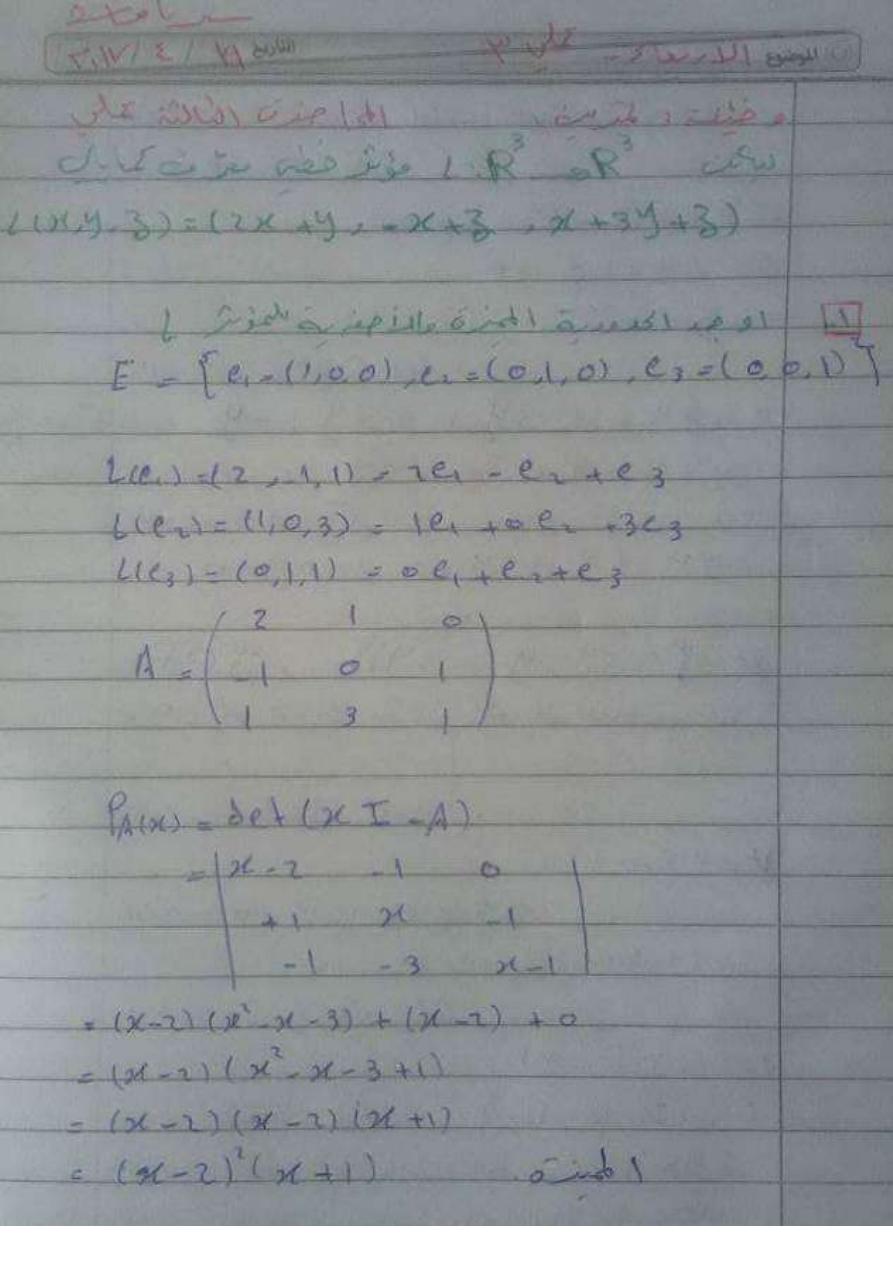 الموضوع الاربعاء
التاريخ ٢٠١٧ / ٤ /
المحاضرة الثالثة علي
ليكن R³ → R³ : L مؤثر خطي معرف كمايلي
L(x,y,z)=(2x+y, -x+z, x+3y+z)
1. اوجد الحدودية المميزة والأصغرية للمؤثر L
E = {e₁=(1,0,0), e₂=(0,1,0), e₃=(0,0,1)}
L(e₁)=(2,-1,1)=2e₁ - e₂ + e₃
L(e₂)=(1,0,3)=1e₁ +0e₂ +3e₃
L(e₃)=(0,1,1)=0e₁ +e₂+e₃
2 1 0
A = -1 0 1
1 3 1
P_A(x) = det(xI - A)
= x-2 -1 0
+1 x -1
-1 -3 x-1
= (x-2)(x²-x-3) + (x-2) + 0
= (x-2)(x²-x-3+1)
= (x-2)(x-2)(x+1)
= (x-2)²(x+1) المميزة